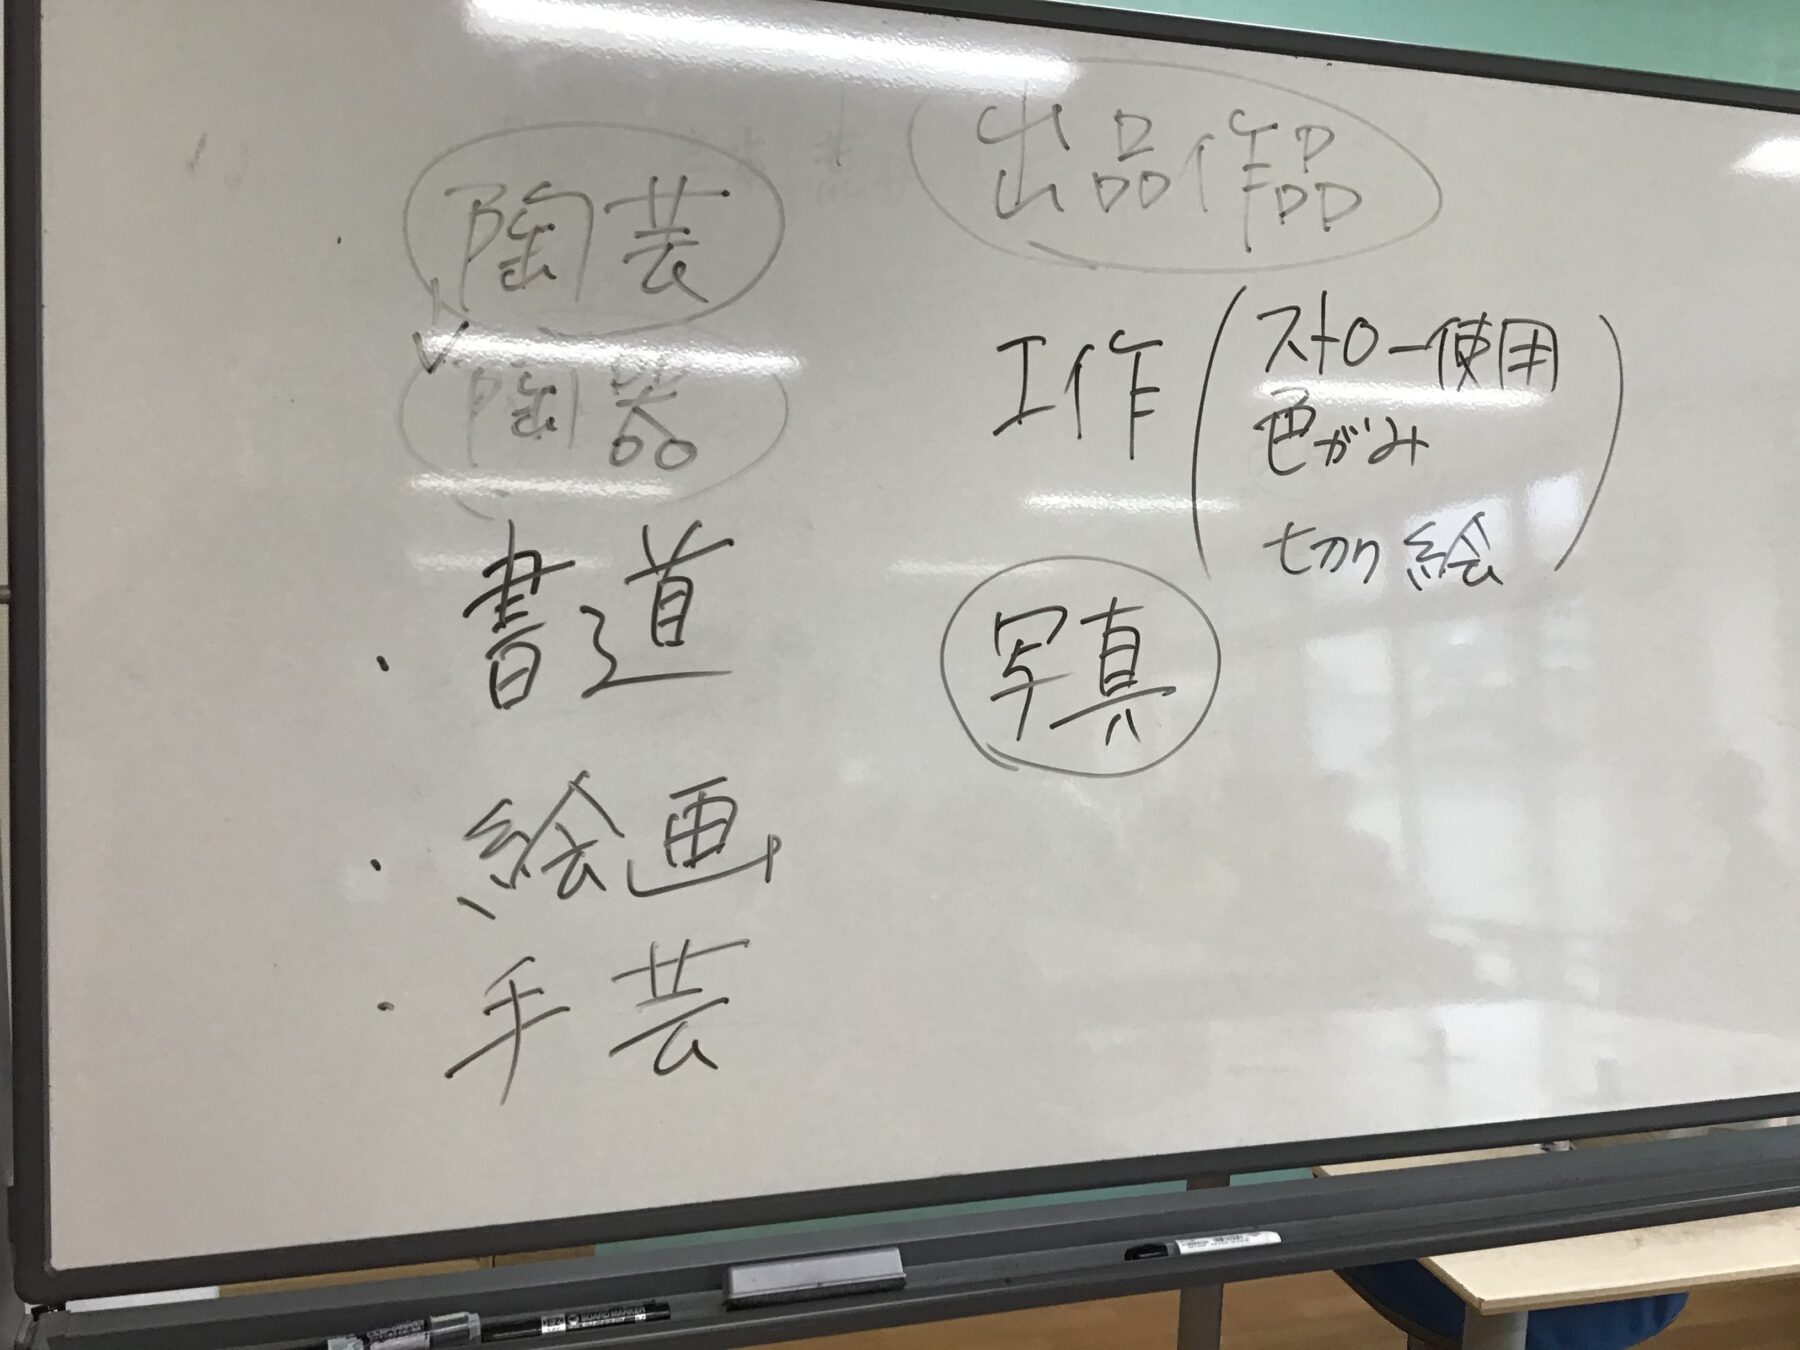 出品作品
陶芸
陶器
・書道
・絵画
・手芸
工作（ストロー使用
色がみ
切り絵）
写真
BOARD MARKER